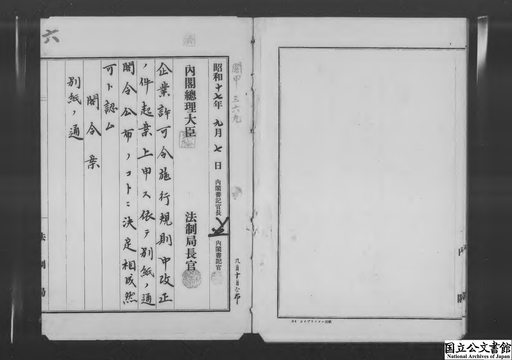 六
閣甲 五六九
昭和十七年 九月 七 日
内閣書記官長
内閣書記官
内閣總理大臣
法制局長官
九月十日公布
企業許可令施行規則中改正
ノ件起業上申ス依テ別紙ノ通
閣令公布ノコトニ決定相成然
可ト認ム
閣令案
別紙ノ通
法制局
国立公文書館
National Archives of Japan